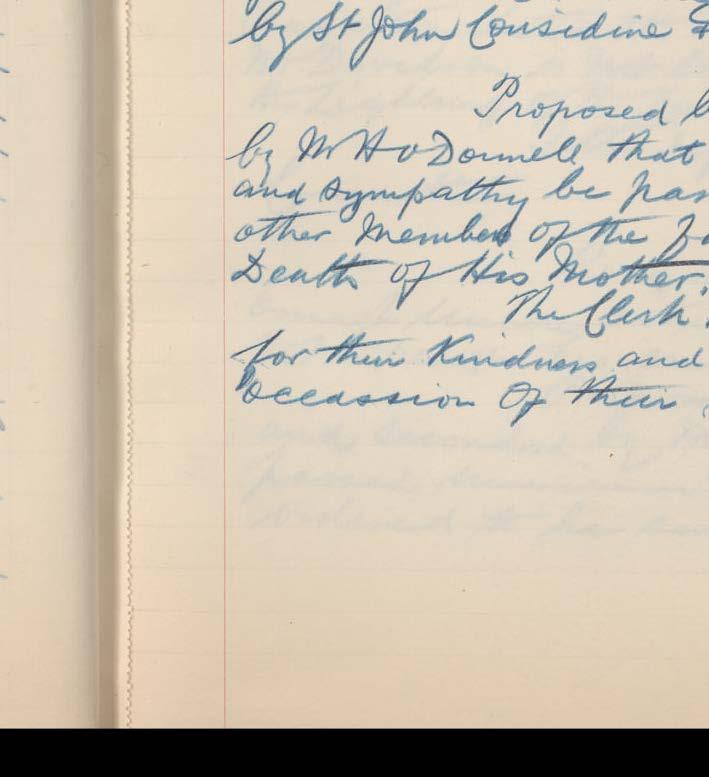 by St John Considine
Proposed
by Mr H O Donnell that
and sympathy be
other Members of the
Death of His Mother.
The Clerk
for their Kindness and
occassion of their